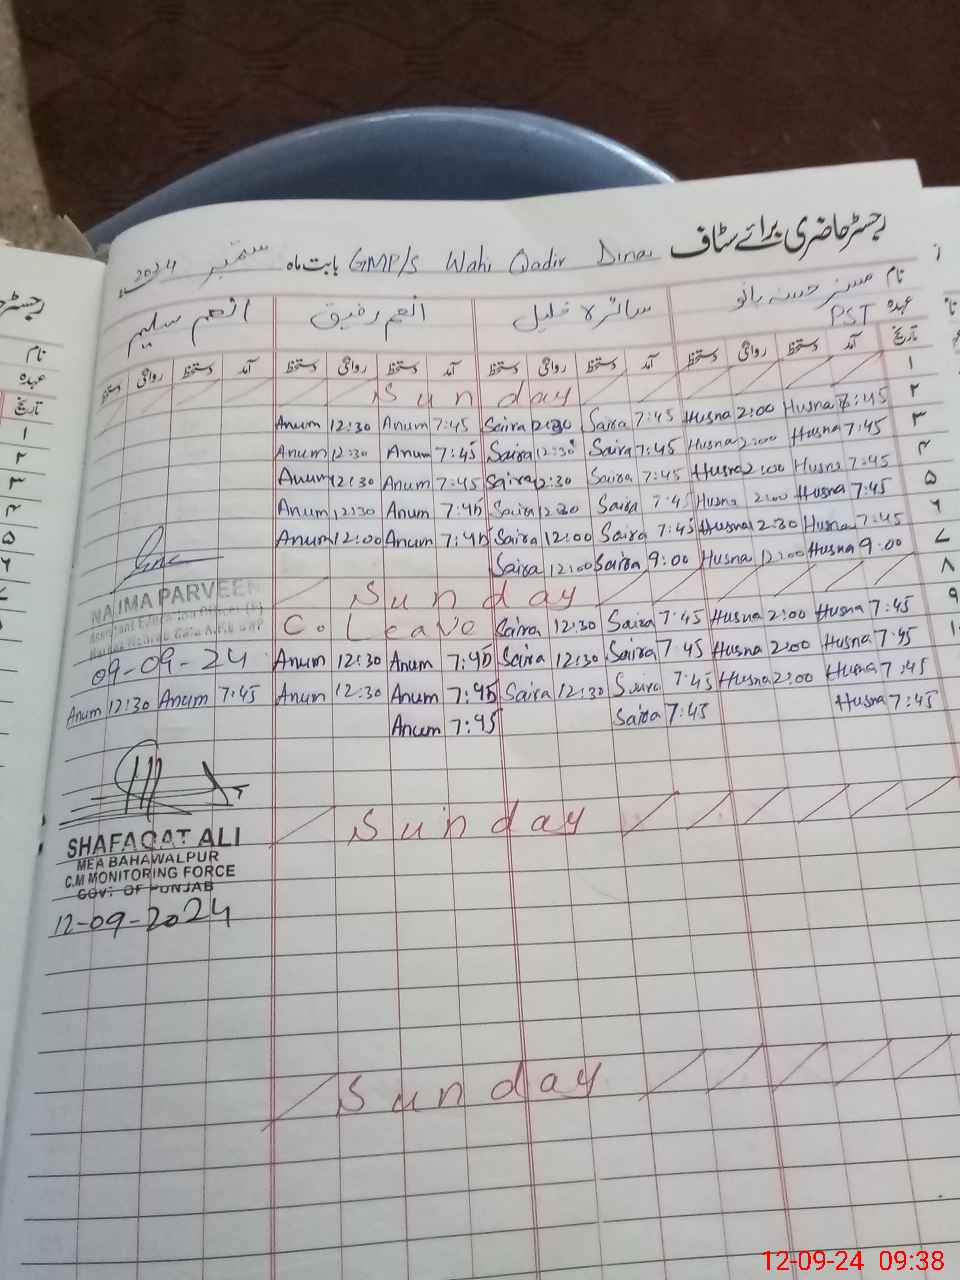 رجسٹر حاضری برائے سٹاف GMP/S Wahi Qadir Dina بابت ماہ ستمبر 2024
نام مسز حسنہ بانو سائرہ خلیل انعم رفیق انعم سلیم
عہدہ PST
تاریخ آمد دستخط روانگی دستخط آمد دستخط روانگی دستخط آمد دستخط روانگی دستخط آمد دستخط روانگی دستخط
۱ Sunday
۲ Anum 12:30 Anum 7:45 Saira 12:30 Saira 7:45 Husna 2:00 Husna 7:45
۳ Anum 12:30 Anum 7:45 Saira 12:30 Saira 7:45 Husna 2:00 Husna 7:45
۴ Anum 12:30 Anum 7:45 Saira 12:30 Saira 7:45 Husna 2:00 Husna 7:45
۵ Anum 12:30 Anum 7:45 Saira 12:30 Saira 7:45 Husna 2:00 Husna 7:45
۶ Anum 12:00 Anum 7:45 Saira 12:00 Saira 7:45 Husna 12:30 Husna 7:45
۷ Saira 12:00 Saira 9:00 Husna 12:00 Husna 9:00
۸ Sunday
NAIMA PARVEEN
۹ C. Leave Saira 12:30 Saira 7:45 Husna 2:00 Husna 7:45
09-09-24 Anum 12:30 Anum 7:45 Saira 12:30 Saira 7:45 Husna 2:00 Husna 7:45
Anum 12:30 Anum 7:45 Anum 12:30 Anum 7:45 Saira 12:30 Saira 7:45 Husna 2:00 Husna 7:45
Anum 7:45 Saira 7:45 Husna 7:45
Sunday
SHAFAQAT ALI
MEA BAHAWALPUR
C.M MONITORING FORCE
GOVT OF PUNJAB
12-09-2024
Sunday
نام
عہدہ
تاریخ
۱
۲
۳
۴
۵
۶
12-09-24 09:38